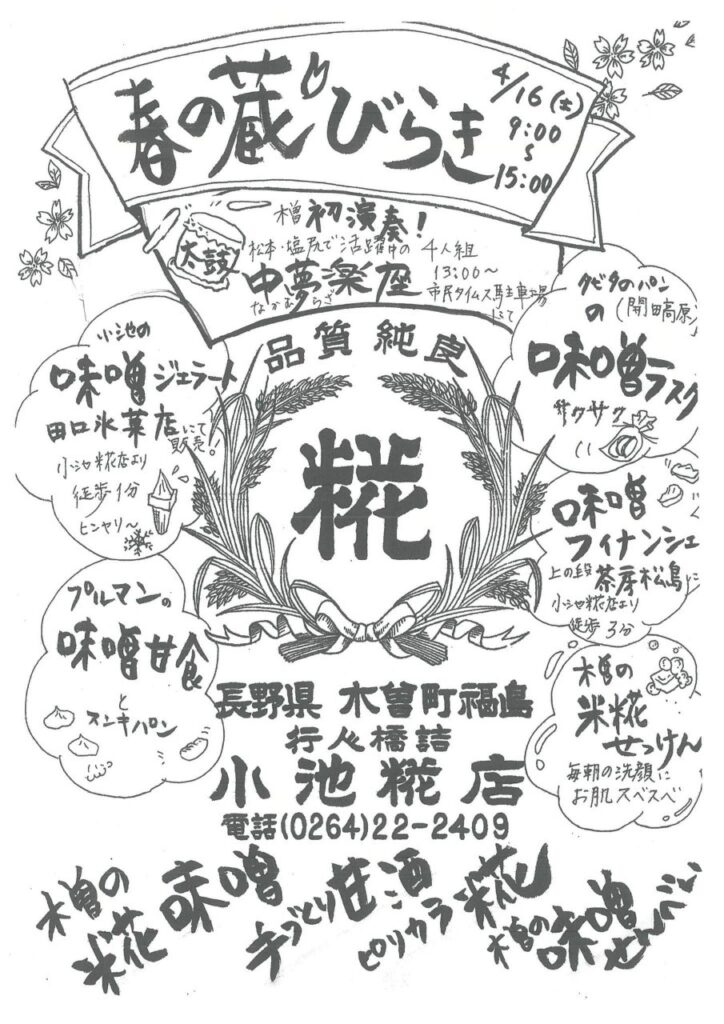 春の蔵びらき
4/16(土)
9:00
〜
15:00
太鼓
木曽初演奏!
松本・塩尻で活躍中の4人組
中夢楽座
なかむらざ
13:00〜
市民タイムス駐車場
にて
品質純良
糀
小池の
味噌ジェラート
田口氷菓店にて
販売!
小池糀店より
徒歩1分
ヒンヤリ〜
タビタのパン
の(開田高原)
味噌ラスク
サクサク
味噌
フィナンシェ
上の段 茶房松島に
小池糀店より
徒歩3分
プルマンの
味噌甘食
と
スンキパン
木曽の
米糀
せっけん
毎朝の洗顔に
お肌スベスベ
長野県 木曽町福島
行人橋詰
小池糀店
電話(0264)22-2409
木曽の
米花味噌
手づくり甘酒
ピリカラ糀
木曽の味噌せんべい